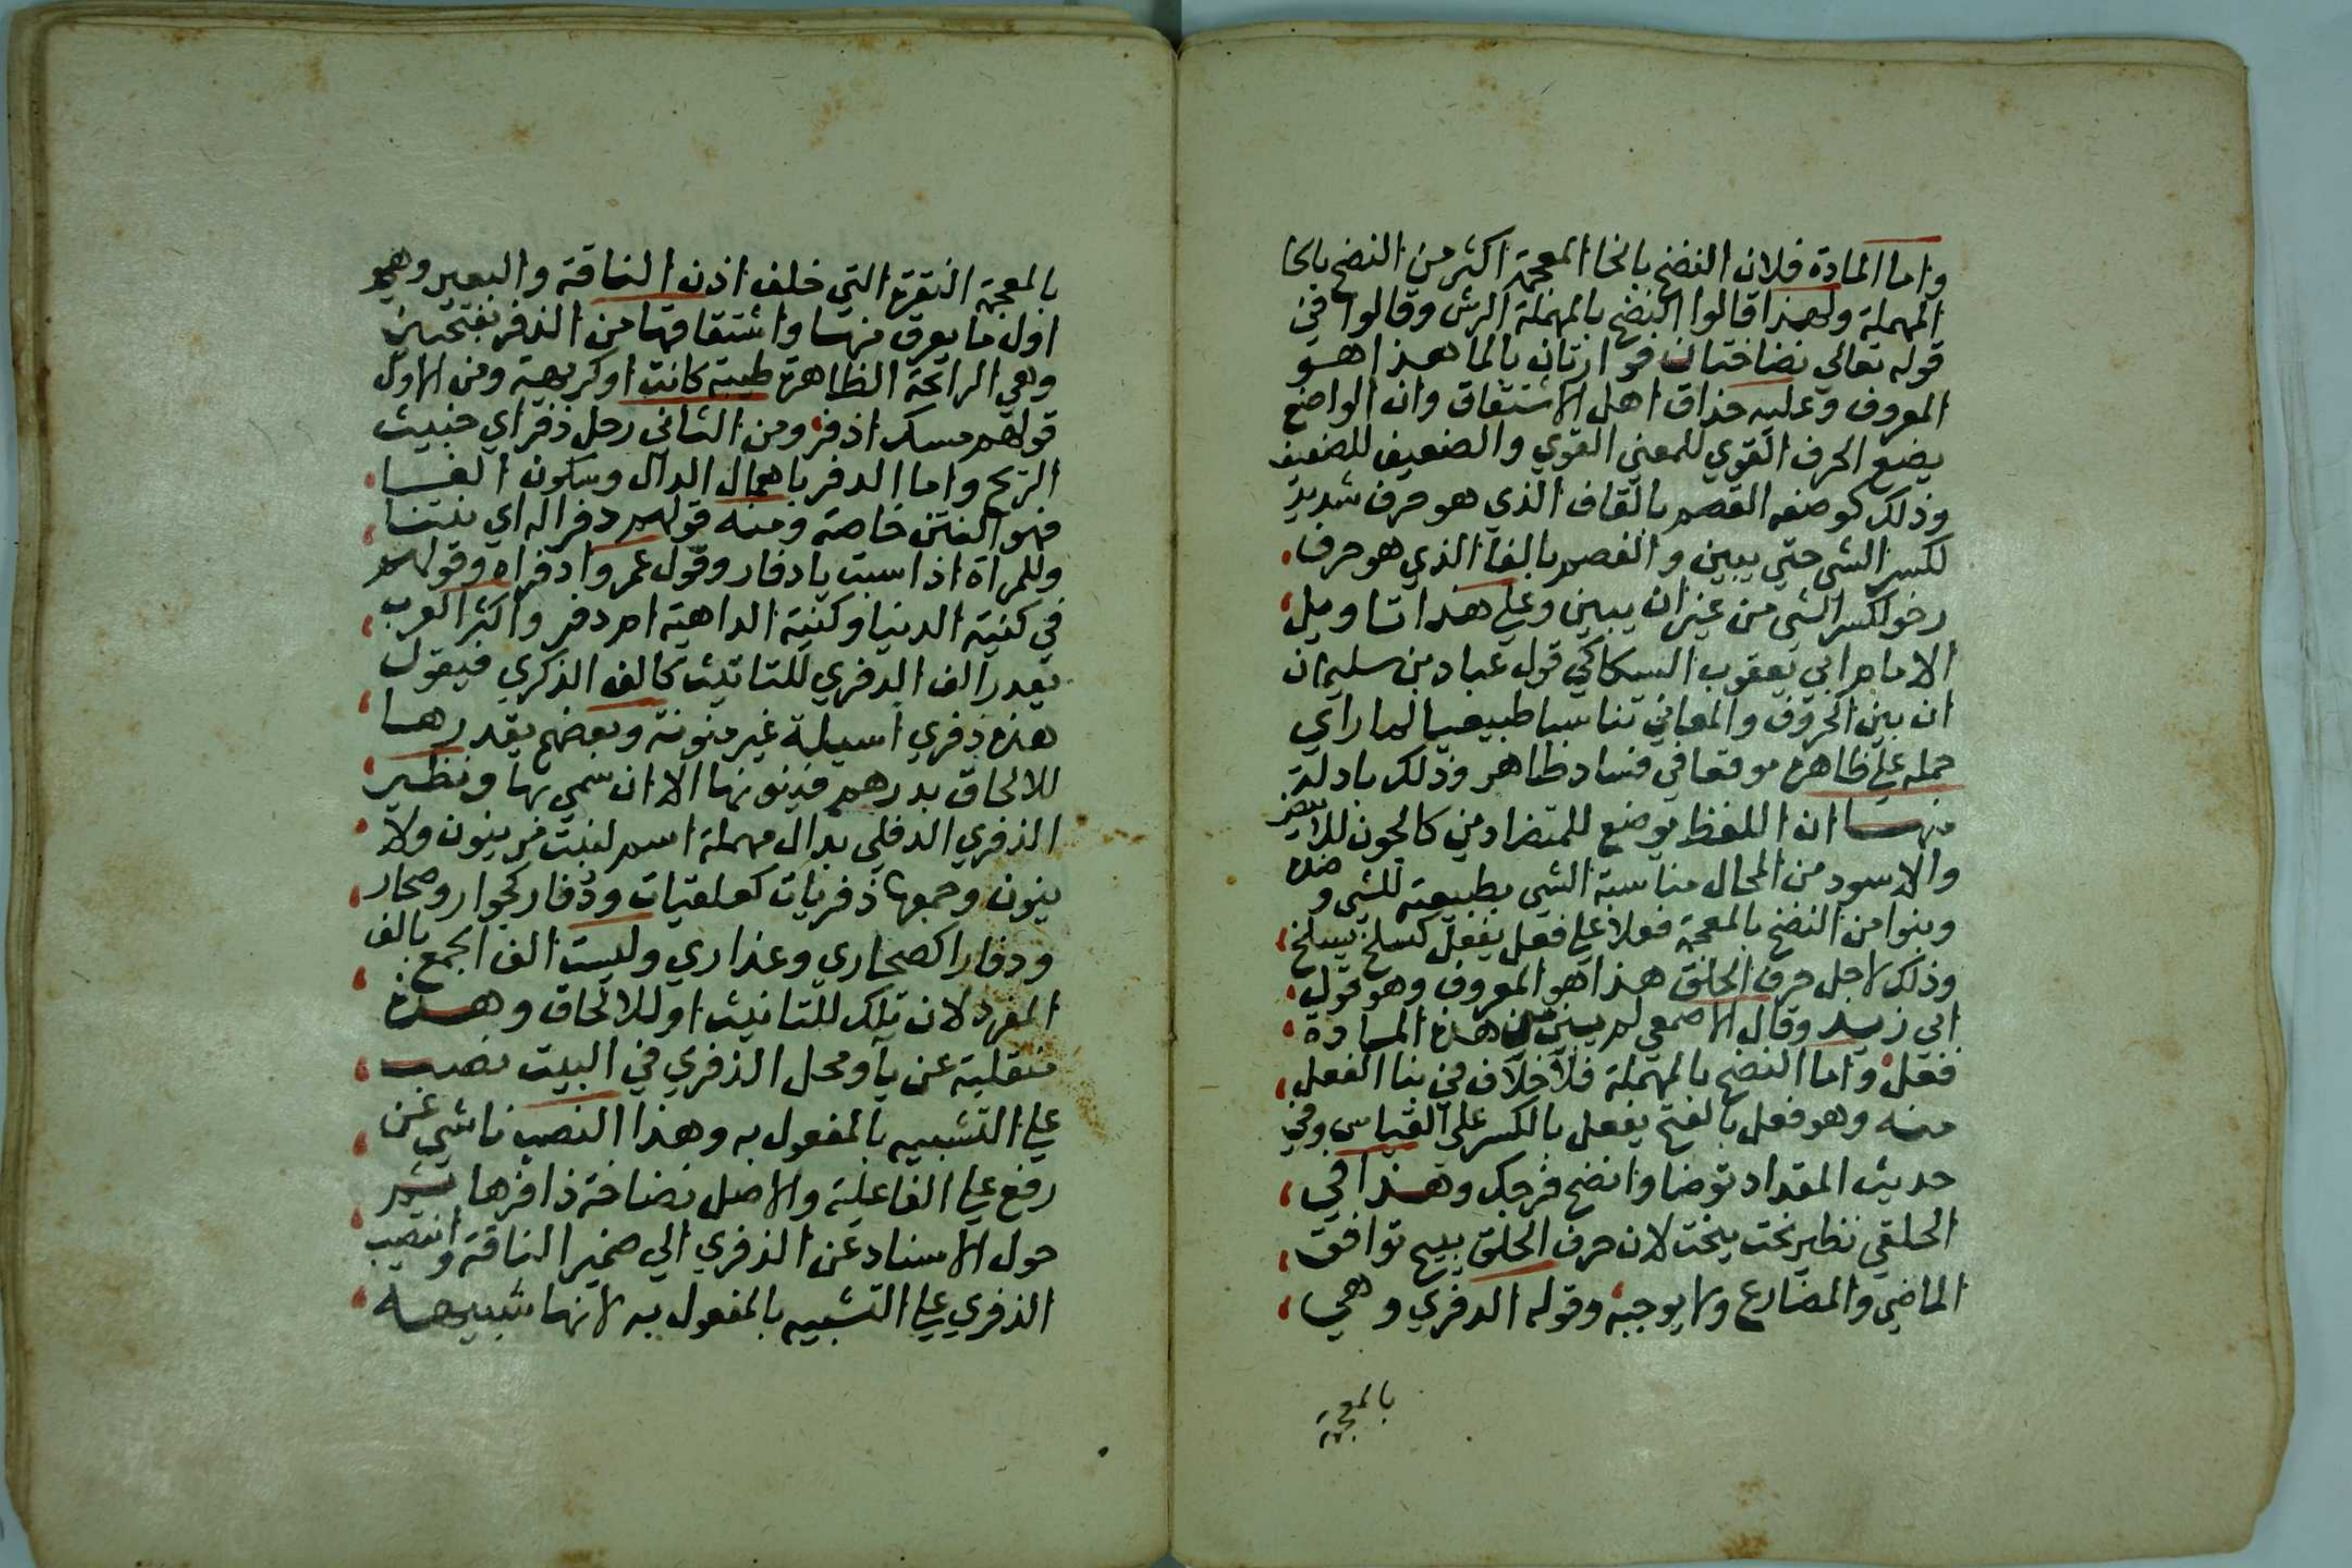 واما المادة فلان النضخ بالخا المعجمة اكثر من النضح بالحا
المهملة ولهذا قالوا النضح بالمهملة الرش وقالوا في
قوله تعالي نضاختان فوارتان بالما هذا هو
المعروف وعليه حذاق اهل الاشتقاق وان الواضع
يضع الحرف القوي للمعني القوي والضعيف للضعيف
وذلك كوضعه القصم بالقاف الذي هو حرف شديد
لكسر الشي حتي يبين والفصم بالفا الذي هو حرف
رخو لكسر الشي من غير ان يبين وعلي هذا تاويل
الامام ابي يعقوب السكاكي قول عباد بن سليمان
ان بين الحروف والمعاني تناسبا طبيعيا لما راي
حمله علي ظاهره موقعا في فساد ظاهر وذلك بادلة
منها ان اللفظ يوضع للمتضادين كالجون للابيض
والاسود من المحال مناسبة الشي بطبيعته للشي وضده
وبنوا من النضخ بالمعجمة فعلا علي فعل يفعل كسلخ يسلخ
وذلك لاجل حرف الحلق هذا هو المعروف وهو قول
ابي زيد وقال الاصمعي لم يبنين من هذه المادة
فعل واما النضح بالمهملة فلا خلاف في بنا الفعل
منه وهو فعل بالفتح يفعل بالكسر علي القياس وفي
حديث المقداد توضا وانضح فرجك وهذا في
الحلقي نظير نحت ينحت لان حرف الحلق يبيح توافق
الماضي والمضارع ولا يوجبه وقوله الدفري وهي
بالمعجمة
بالمعجمة النقرة التي خلف اذن الناقة والبعير وهو
اول ما يعرق منها واشتقاقها من الذفر بفتحتين
وهي الرائحة الظاهرة طيبة كانت او كريهة ومن الاول
قولهم مسك اذفر ومن الثاني رجل ذفر اي خبيث
الريح واما الدفر باهمال الدال وسكون الفا
فهو النتن خاصة ومنه قولهم دفرا له اي نتنا
وللمراة اذا سبت يا دفار وقول عمر وادفراه وقولهم
في كنية الدنيا وكنية الداهية ام دفر واكثر العرب
يقدر الف الدفري للتانيث كالف الذكري فيقول
هذه ذفري اسيلة غير منونة وبعضهم يقدرها
للالحاق بدرهم فينونها الا ان سمي بها ونظير
الذفري الدفلي بدال مهملة اسم لنبت مر ينون ولا
ينون وجمعها ذفريات كعلقيات وذفار كجوار وصحار
ودفارا كصحاري وعذاري وليست الف الجمع بالف
المفرد لان تلك للتانيث او للالحاق وهذه
منقلبة عن يا ومحل الذفري في البيت نصب
علي التشبيه بالمفعول به وهذا النصب ناشي عن
رفع علي الفاعلية والاصل نضاخة ذافرها ثم
حول الاسناد عن الذفري الي ضمير الناقة وانتصب
الذفري علي التشبيه بالمفعول به لانها شبيهه